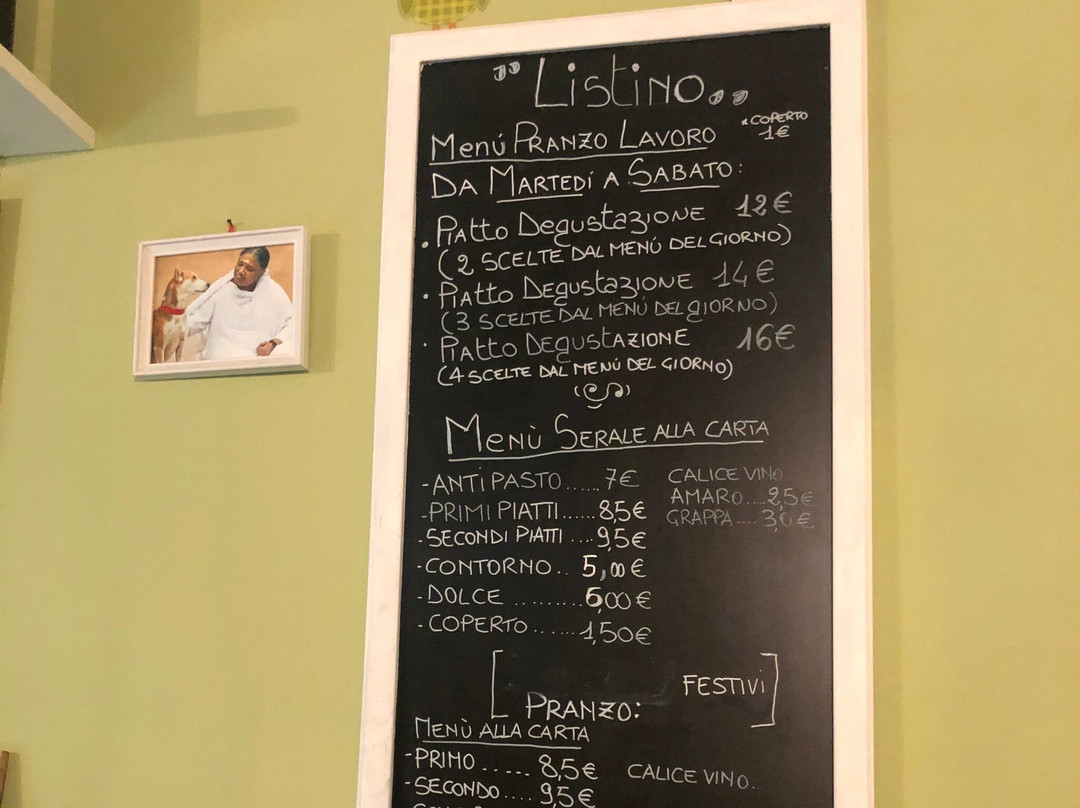 " Listino "
Menú Pranzo Lavoro
*Coperto
1€
Da Martedí a Sabato:
• Piatto Degustazione 12€
(2 scelte dal menú del giorno)
• Piatto Degustazione 14€
(3 scelte dal menú del giorno)
• Piatto Degustazione 16€
(4 scelte dal menú del giorno)
Menù Serale alla carta
- Antipasto...... 7€
- Primi piatti...... 8,5€
- Secondi piatti .... 9,5€
- Contorno.. 5,00€
- Dolce .......... 6,00€
- Coperto...... 1,50€
Calice vino
Amaro.... 2,5€
Grappa.... 3,0€
[ Festivi ]
Pranzo:
Menù alla carta
- Primo ..... 8,5€
- Secondo.... 9,5€
Calice vino..